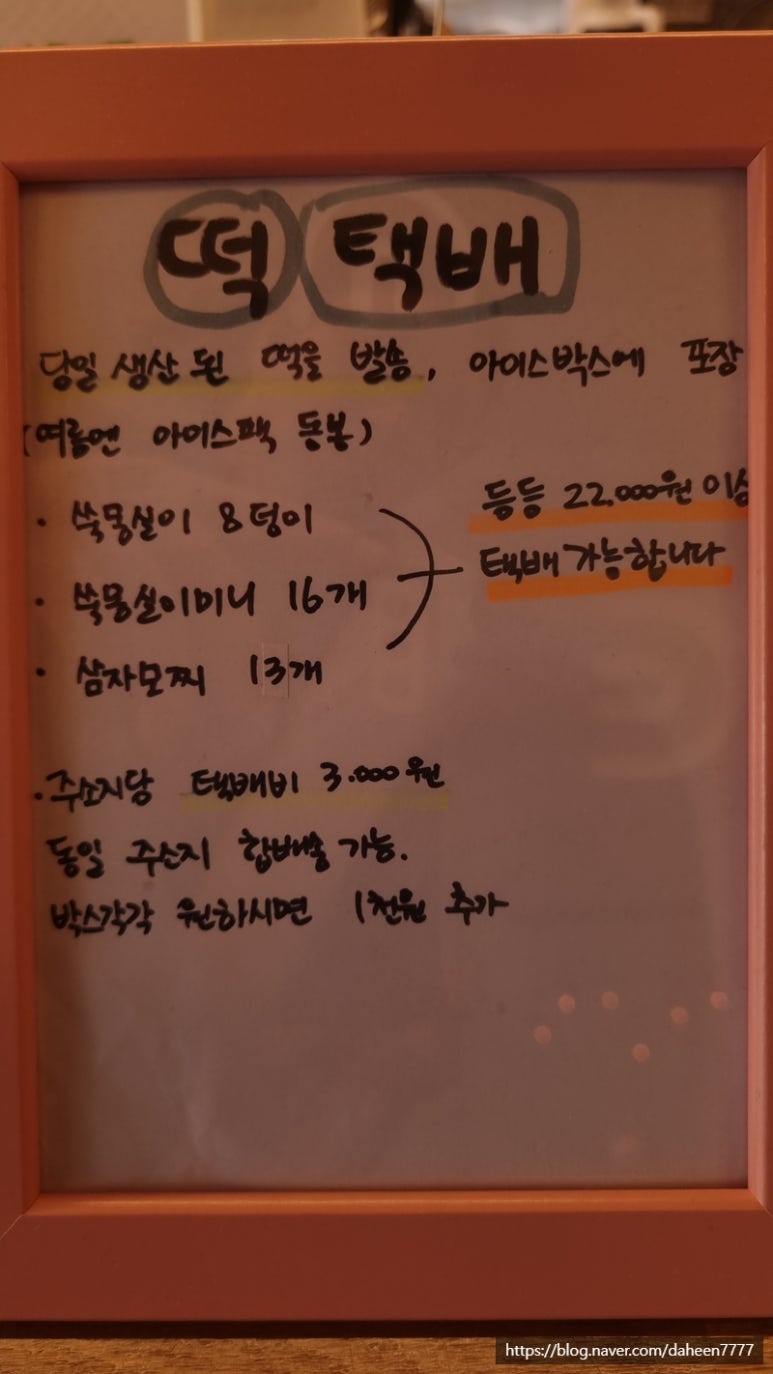 떡 택배
당일 생산 된 떡을 발송, 아이스박스에 포장
(여름엔 아이스팩 동봉)
· 쑥뭉실이 8덩이
· 쑥뭉실이미니 16개
· 삼자모찌 13개
등등 22,000원 이상
택배 가능합니다
· 주소지당 택배비 3.000원
동일 주소지 합배송 가능.
박스각각 원하시면 1천원 추가
https://blog.naver.com/daheen7777